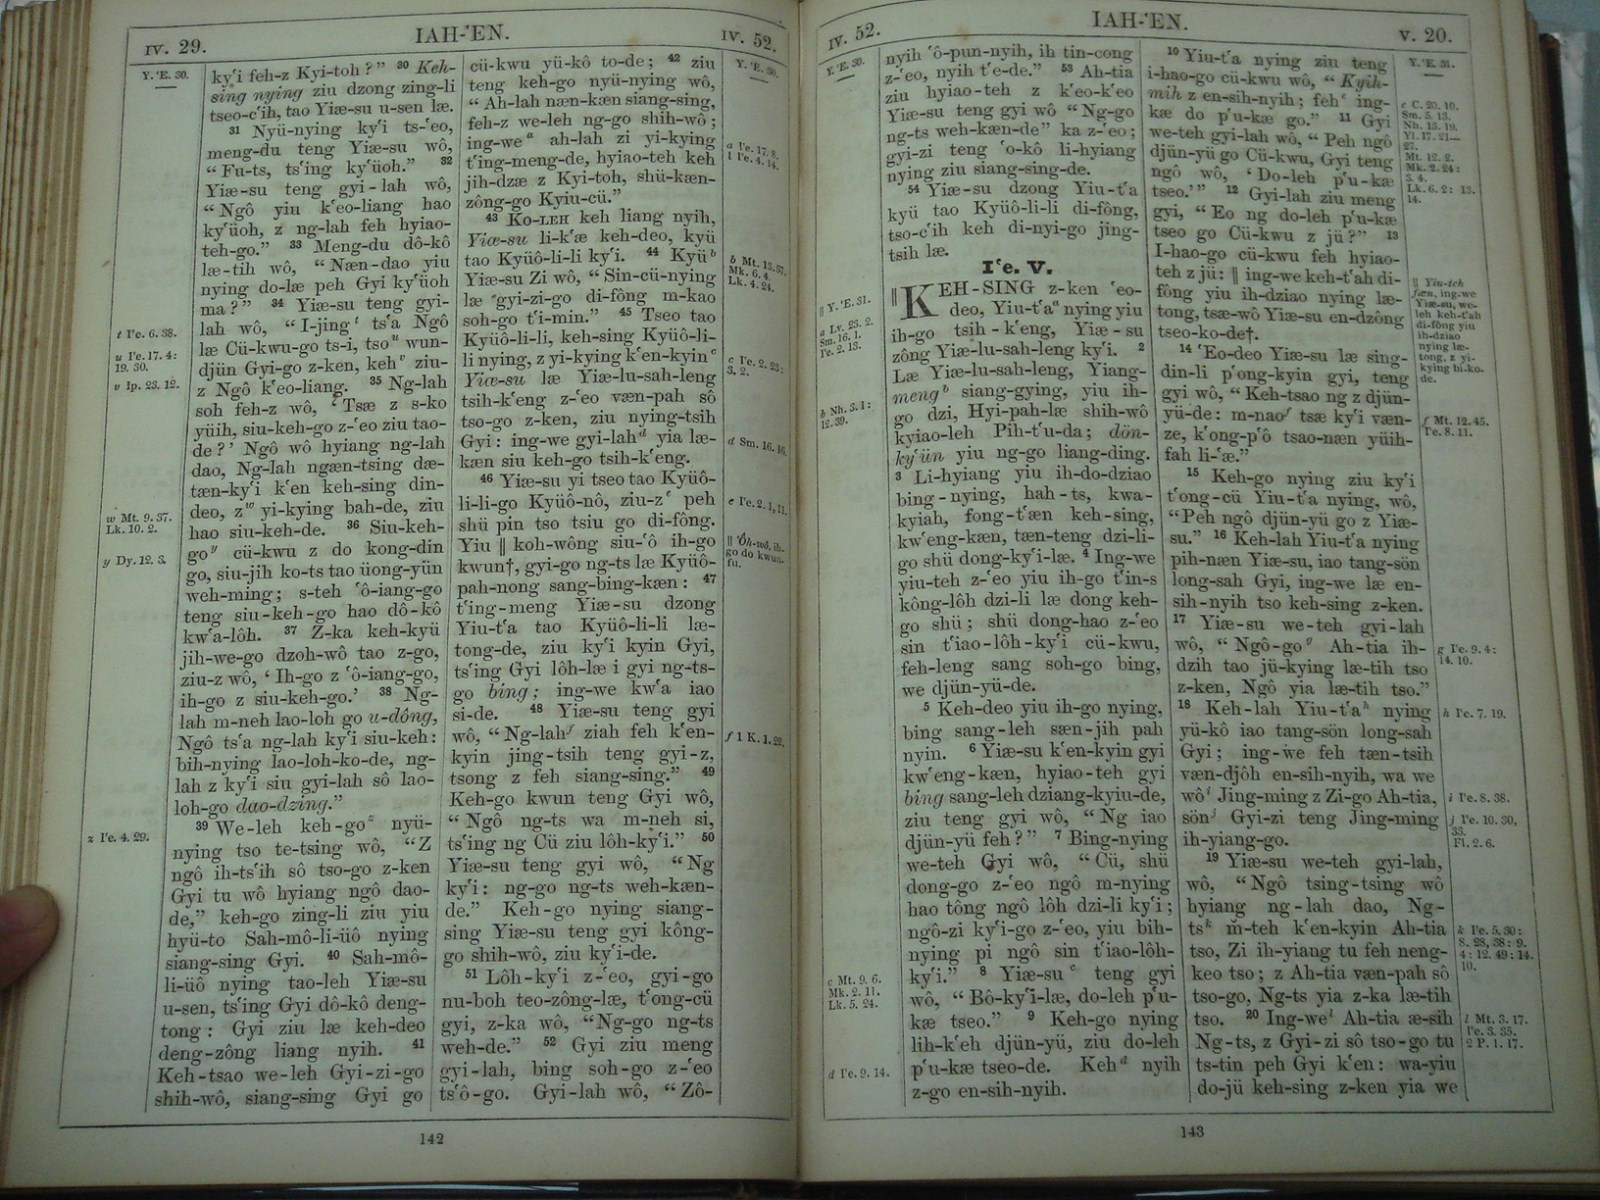 IV. 29.
IAH-‘EN.
IV. 52.
Y. ‘E. 30.
ky‘i feh-z Kyi-toh?” 30 Keh-
sing nying ziu dzong zing-li
tseo-c‘ih, tao Yiæ-su u-sen læ.
31 Nyü-nying ky‘i ts-‘eo,
meng-du teng Yiæ-su wô,
“Fu-ts, ts‘ing ky‘üoh.” 32
Yiæ-su teng gyi-lah wô,
“Ngô yiu k‘eo-liang hao
ky‘üoh, z ng-lah feh hyiao-
teh-go.” 33 Meng-du dô-kô
læ-tih wô, “Næn-dao yiu
nying do-læ peh Gyi ky‘üoh
ma?” 34 Yiæ-su teng gyi-
lah wô, “I-jing t ts‘a Ngô
læ Cü-kwu-go ts-i, tso u wun-
djün Gyi-go z-ken, keh v ziu-
z Ngô k‘eo-liang. 35 Ng-lah
soh feh-z wô, ‘Tsæ z s-ko
yüih, siu-keh-go z-‘eo ziu tao-
de?’ Ngô wô hyiang ng-lah
dao, Ng-lah ngæn-tsing dæ-
tæn-ky‘i k‘en keh-sing din-
deo, z w yi-kying bah-de, ziu
hao siu-keh-de. 36 Siu-keh-
go y cü-kwu z do kong-din
go, siu-jih ko-ts tao üong-yün
weh-ming; s-teh ‘ô-iang-go
teng siu-keh-go hao dô-kô
kw‘a-lôh. 37 Z-ka keh-kyü
jih-we-go dzoh-wô tao z-go,
ziu-z wô, ‘Ih-go z ‘ô-iang-go,
ih-go z siu-keh-go.’ 38 Ng-
lah m-neh lao-loh go u-dông,
Ngô ts‘a ng-lah ky‘i siu-keh:
bih-nying lao-loh-ko-de, ng-
lah z ky‘i siu gyi-lah sô lao-
loh-go dao-dzing.”
39 We-leh keh-go z nyü-
nying tso te-tsing wô, “Z
ngô ih-ts‘ih sô tso-go z-ken
Gyi tu wô hyiang ngô dao-
de,” keh-go zing-li ziu yiu
hyü-to Sah-mô-li-üô nying
siang-sing Gyi. 40 Sah-mô-
li-üô nying tao-leh Yiæ-su
u-sen, ts‘ing Gyi dô-kô deng-
tong: Gyi ziu læ keh-deo
deng-zông liang nyih. 41
Keh-tsao we-leh Gyi-zi-go
shih-wô, siang-sing Gyi go
t I‘e. 6. 38.
u I‘e. 17. 4:
19. 30.
v Ip. 23. 12.
w Mt. 9. 37.
Lk. 10. 2.
y Dy. 12. 3.
z I‘e. 4. 29.
cü-kwu yü-kô to-de; 42 ziu
teng keh-go nyü-nying wô,
“Ah-lah næn-kæn siang-sing,
feh-z we-leh ng-go shih-wô;
ing-we a ah-lah zi yi-kying
t‘ing-meng-de, hyiao-teh keh
jih-dzæ z Kyi-toh, shü-kæn-
zông-go Kyiu-cü.”
43 KO-LEH keh liang nyih,
Yiæ-su li-k‘æ keh-deo, kyü
tao Kyüô-li-li ky‘i. 44 Kyü b
Yiæ-su Zi wô, “Sin-cü-nying
læ gyi-zi-go di-fông m-kao
soh-go t‘i-min.” 45 Tseo tao
Kyüô-li-li, keh-sing Kyüô-li-
li nying, z yi-kying k‘en-kyin c
Yiæ-su læ Yiæ-lu-sah-leng
tsih-k‘eng z-‘eo væn-pah sô
tso-go z-ken, ziu nying-tsih
Gyi: ing-we gyi-lah d yia læ-
kæn siu keh-go tsih-k‘eng.
46 Yiæ-su yi tseo tao Kyüô-
li-li-go Kyüô-nô, ziu-z e peh
shü pin tso tsiu go di-fông.
Yiu ‖ koh-wông siu-‘ô ih-go
kwun†, gyi-go ng-ts læ Kyüô-
pah-nong sang-bing-kæn: 47
t‘ing-meng Yiæ-su dzong
Yiu-t‘a tao Kyüô-li-li læ-
tong-de, ziu ky‘i kyin Gyi,
ts‘ing Gyi lôh-læ i gyi ng-ts-
go bing; ing-we kw‘a iao
si-de. 48 Yiæ-su teng gyi
wô, “Ng-lah f ziah feh k‘en-
kyin jing-tsih teng gyi-z,
tsong z feh siang-sing.” 49
Keh-go kwun teng Gyi wô,
“Ngô ng-ts wa m-neh si,
ts‘ing ng Cü ziu lôh-ky‘i.” 50
Yiæ-su teng gyi wô, “Ng
ky‘i: ng-go ng-ts weh-kæn-
de.” Keh-go nying siang-
sing Yiæ-su teng gyi kông-
go shih-wô, ziu ky‘i-de.
51 Lôh-ky‘i z-‘eo, gyi-go
nu-boh teo-zông-læ, t‘ong-cü
gyi, z-ka wô, “Ng-go ng-ts
weh-de.” 52 Gyi ziu meng
gyi-lah, bing soh-go z-‘eo
ts‘ô-go. Gyi-lah wô, “Zô-
Y. ‘E. 30.
a I‘e. 17. 8.
1 I‘e. 4. 14.
b Mt. 13. 57.
Mk. 6. 4.
Lk. 4. 24.
c I‘e. 2. 23:
3. 2.
d Sm. 16. 16.
e I‘e. 2. 1, 11.
‖ Ôh-wô, ih-
go do kwun-
fu.
f 1 K. 1. 22.
142
IV. 52.
IAH-‘EN.
V. 20.
Y. ‘E. 30.
nyih ‘ô-pun-nyih, ih tin-cong
z-‘eo, nyih t‘e-de.” 53 Ah-tia
ziu hyiao-teh z k‘eo-k‘eo
Yiæ-su teng gyi wô “Ng-go
ng-ts weh-kæn-de” ka z-‘eo;
gyi-zi teng ‘o-kô li-hyiang
nying ziu siang-sing-de.
54 Yiæ-su dzong Yiu-t‘a
kyü tao Kyüô-li-li di-fông,
tso-c‘ih keh di-nyi-go jing-
tsih læ.
I‘e. V.
‖ KEH-SING z-ken ‘eo-
deo, Yiu-t‘a a nying yiu
ih-go tsih-k‘eng, Yiæ-su
zông Yiæ-lu-sah-leng ky‘i. 2
Læ Yiæ-lu-sah-leng, Yiang-
meng b siang-gying, yiu ih-
go dzi, Hyi-pah-læ shih-wô
kyiao-leh Pih-t‘u-da; dön-
ky‘ün yiu ng-go liang-ding.
3 Li-hyiang yiu ih-do-dziao
bing-nying, hah-ts, kwa-
kyiah, fong-t‘æn keh-sing,
kw‘eng-kæn, tæn-teng dzi-li-
go shü dong-ky‘i-læ. 4 Ing-we
yiu-teh z-‘eo yiu ih-go t‘in-s
kông-lôh dzi-li læ dong keh-
go shü; shü dong-hao z-‘eo
sin t‘iao-lôh-ky‘i cü-kwu,
feh-leng sang soh-go bing,
we djün-yü-de.
5 Keh-deo yiu ih-go nying,
bing sang-leh sæn-jih pah
nyin. 6 Yiæ-su k‘en-kyin gyi
kw‘eng-kæn, hyiao-teh gyi
bing sang-leh dziang-kyiu-de,
ziu teng gyi wô, “Ng iao
djün-yü feh?” 7 Bing-nying
we-teh Gyi wô, “Cü, shü
dong-go z-‘eo ngô m-nying
hao tông ngô lôh dzi-li ky‘i;
ngô-zi ky‘i-go z-‘eo, yiu bih-
nying pi ngô sin t‘iao-lôh-
ky‘i.” 8 Yiæ-su c teng gyi
wô, “Bô-ky‘i-læ, do-leh p‘u-
kæ tseo.” 9 Keh-go nying
lih-k‘eh djün-yü, ziu do-leh
p‘u-kæ tseo-de. Keh d nyih
z-go en-sih-nyih.
‖ Y. ‘E. 31.
a Lv. 23. 2.
Sm. 16. 1.
I‘e. 2. 13.
b Nh. 3. 1:
12. 39.
c Mt. 9. 6.
Mk. 2. 11.
Lk. 5. 24.
d I‘e. 9. 14.
10 Yiu-t‘a nying ziu teng
i-hao-go cü-kwu wô, “Kyih-
mih z en-sih-nyih; feh e ing-
kæ do p‘u-kæ go.” 11 Gyi
we-teh gyi-lah wô, “Peh ngô
djün-yü go Cü-kwu, Gyi teng
ngô wô, ‘Do-leh p‘u-kæ
tseo.’” 12 Gyi-lah ziu meng
gyi, “Eo ng do-leh p‘u-kæ
tseo go Cü-kwu z jü?” 13
I-hao-go cü-kwu feh hyiao-
teh z jü: ‖ ing-we keh-t‘ah di-
fông yiu ih-dziao nying læ-
tong, tsæ-wô Yiæ-su en-dzông
tseo-ko-de†.
14 ‘Eo-deo Yiæ-su læ sing-
din-li p‘ong-kyin gyi, teng
gyi wô, “Keh-tsao ng z djün-
yü-de: m-nao f tsæ ky‘i væn-
ze, k‘ong-p‘ô tsao-næn yüih-
fah li-‘æ.”
15 Keh-go nying ziu ky‘i
t‘ong-cü Yiu-t‘a nying, wô,
“Peh ngô djün-yü go z Yiæ-
su.” 16 Keh-lah Yiu-t‘a nying
pih-næn Yiæ-su, iao tang-sön
long-sah Gyi, ing-we læ en-
sih-nyih tso keh-sing z-ken.
17 Yiæ-su we-teh gyi-lah
wô, “Ngô-go g Ah-tia ih-
dzih tao jü-kying læ-tih tso
z-ken, Ngô yia læ-tih tso.”
18 Keh-lah Yiu-t‘a h nying
yü-kô iao tang-sön long-sah
Gyi; ing-we feh tæn-tsih
væn-djôh en-sih-nyih, wa we
wô i Jing-ming z Zi-go Ah-tia,
sön j Gyi-zi teng Jing-ming
ih-yiang-go.
19 Yiæ-su we-teh gyi-lah,
wô, “Ngô tsing-tsing wô
hyiang ng-lah dao, Ng-
ts k m-teh k‘en-kyin Ah-tia
tso, Zi ih-yiang tu feh neng-
keo tso; z Ah-tia væn-pah sô
tso-go, Ng-ts yia z-ka læ-tih
tso. 20 Ing-we l Ah-tia æ-sih
Ng-ts, z Gyi-zi sô tso-go tu
ts-tin peh Gyi k‘en: wa-yiu
do-jü keh-sing z-ken yia we
Y. ‘E. 31.
e C. 20. 10.
Sm. 5. 13.
Nh. 13. 19.
Yl. 17. 21—
27.
Mt. 12. 2.
Mk. 2. 24:
3. 4.
Lk. 6. 2: 13.
14.
‖ Yiu-teh
fæn, ing-we
Yiæ-su, we-
leh keh-t‘ah
di-fông yiu
ih-dziao
nying læ-
tong, z yi-
kying bi-ko-
de.
f Mt. 12. 45.
I‘e. 8. 11.
g I‘e. 9. 4:
14. 10.
h I‘e. 7. 19.
i I‘e. 8. 38.
j I‘e. 10. 30,
33.
Fl. 2. 6.
k I‘e. 5. 30:
8. 28, 38: 9.
4: 12. 49: 14.
10.
l Mt. 3. 17.
I‘e. 3. 35.
2 P. 1. 17.
143